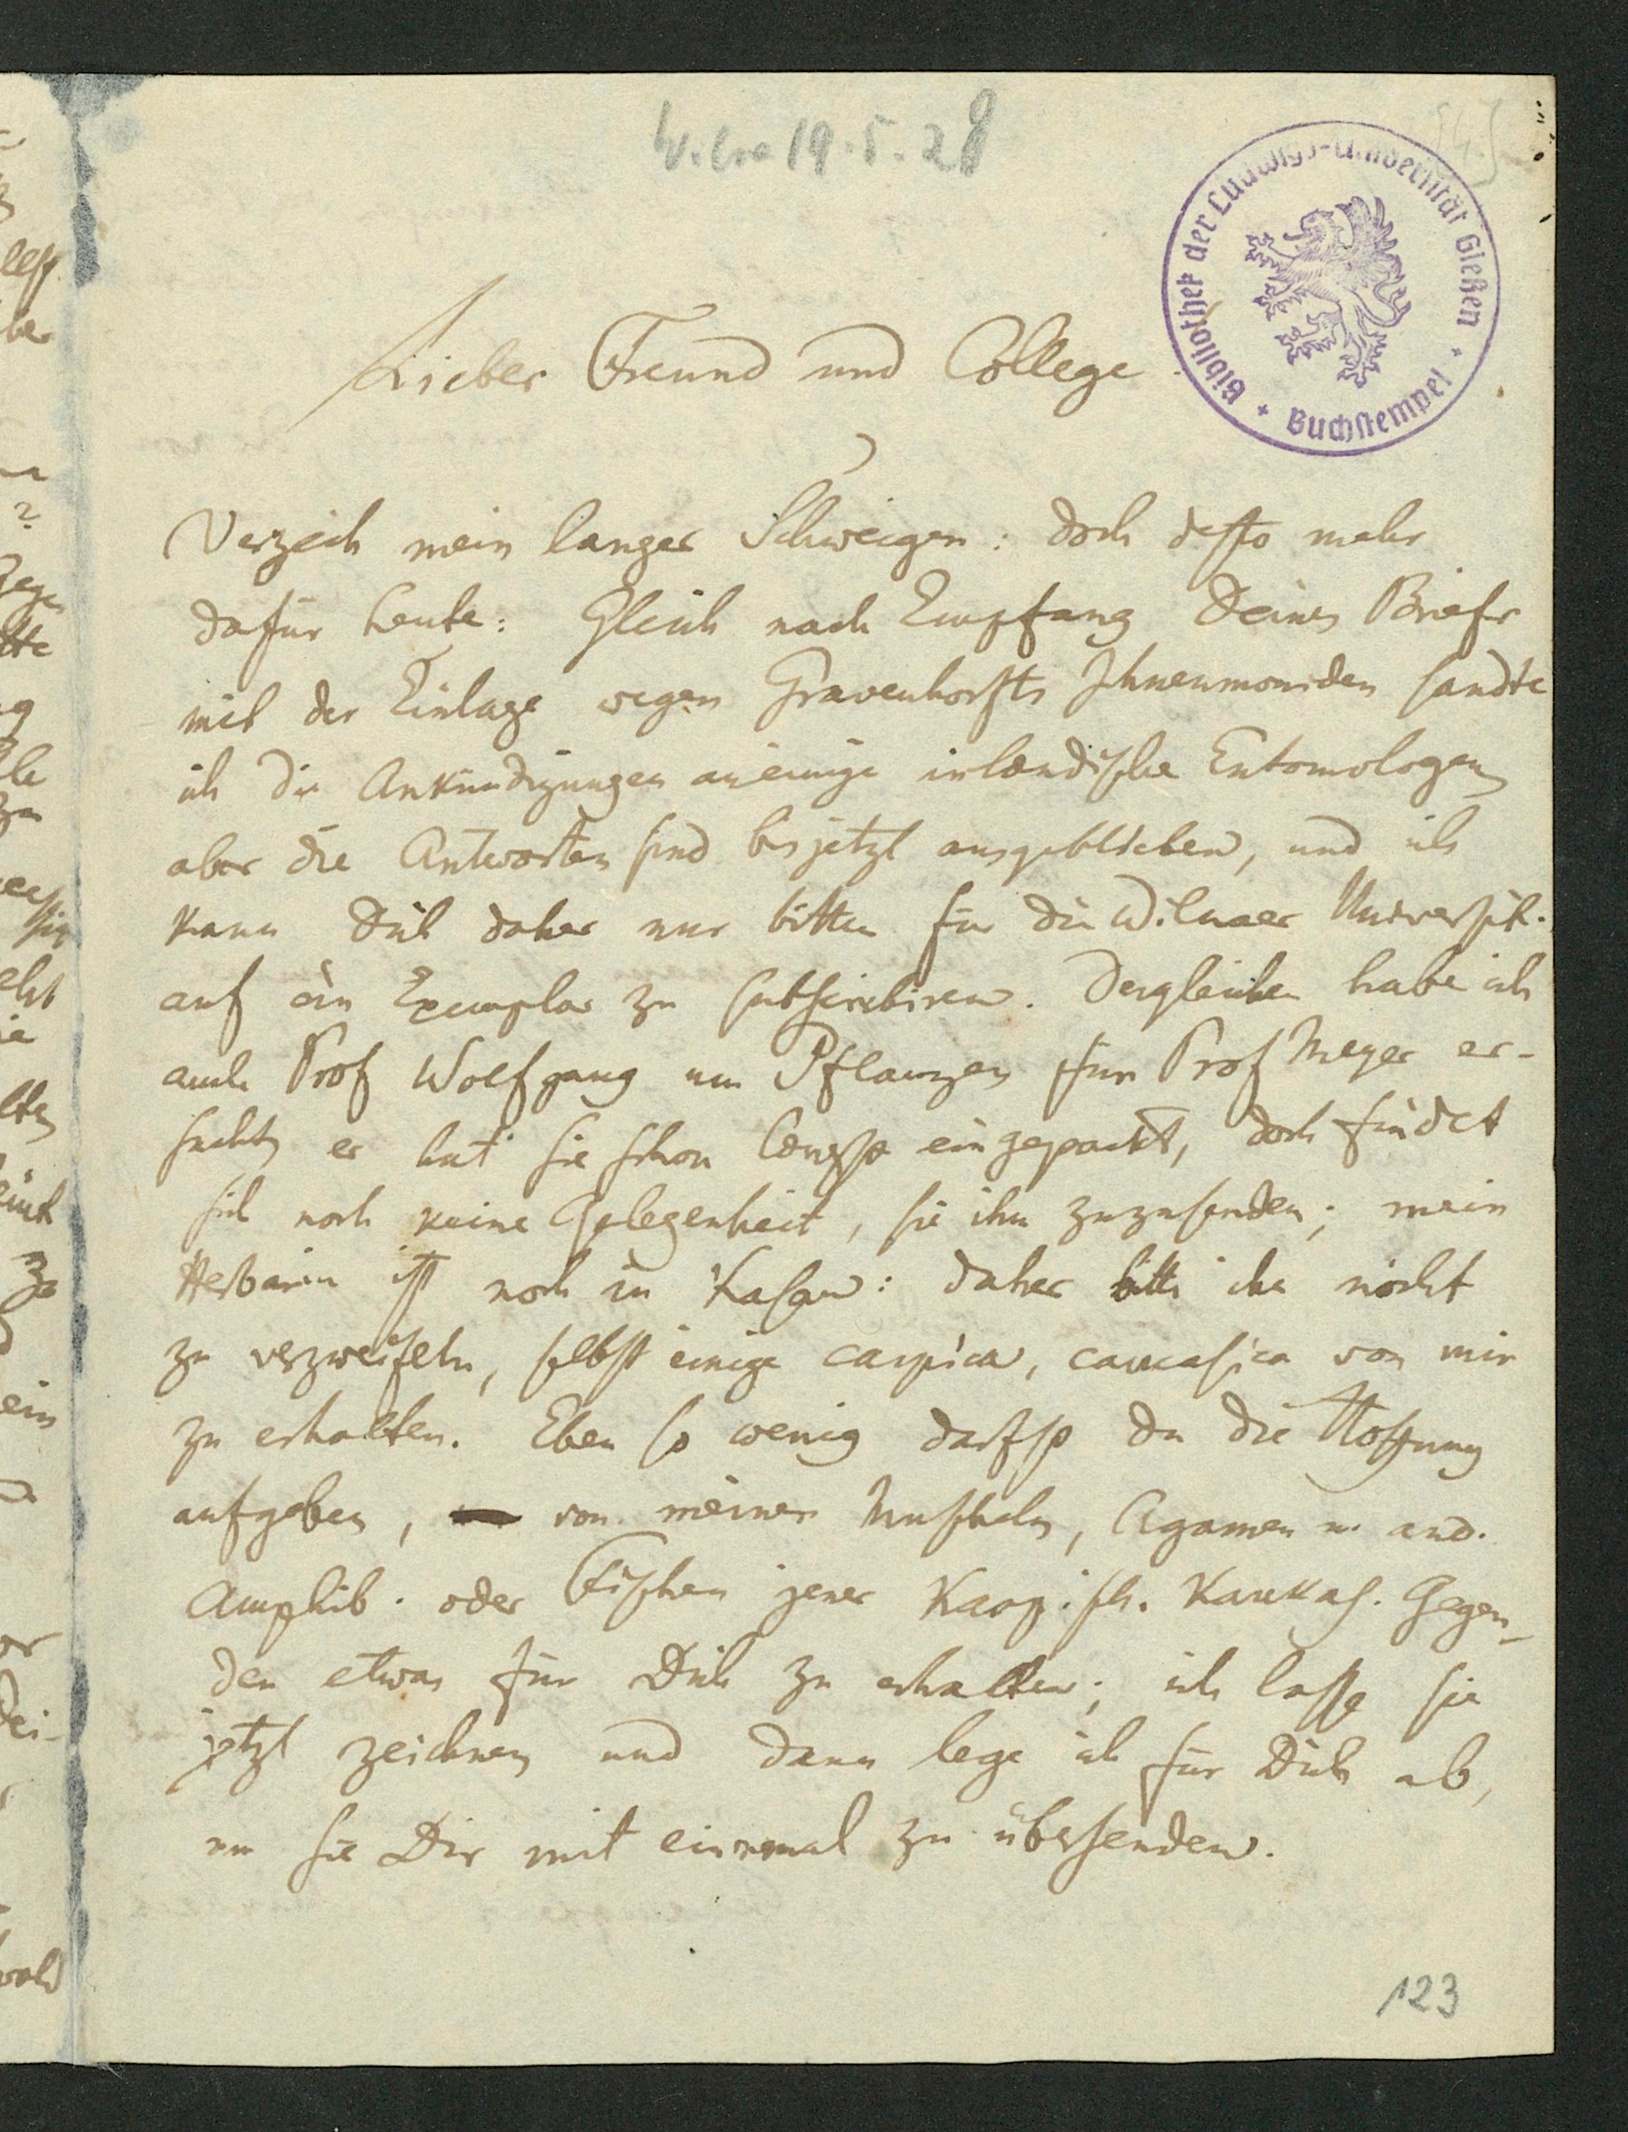 Wilna 19.5.28
Bibliothek der Ludwigs-Universität Gießen + Buchstempel +
Lieber Freund und College
Verzeih mein langes Schweigen: doch desto mehr
dafür heute: Gleich nach Empfang Deines Briefes
mit der Einlage wegen Gravenhorsts Ichneumoniden sandte
ich die Ankündigungen an einige inländische Entomologen
aber die Antworten sind bis jetzt ausgeblieben, und ich
kann Dich daher nur bitten für die Wilnaer Universit.
auf ein Exemplar zu subscribiren. Desgleichen habe ich
auch Prof Wolfgang um Pflanzen für Prof Meyer er-
sucht, er hat sie schon längst eingepackt, doch findet
sich noch keine Gelegenheit, sie ihm zuzusenden; mein
Herbarium ist noch in Kasan: daher bitte ihn nicht
zu verzweifeln, selbst einige caspica, caucasica von mir
zu erhalten. Eben so wenig darfst du die Hoffnung
aufgeben, von meinen Muscheln, Agamen u. and.
Amphib. oder Fischen jener Kasp.sch. Kaukas. Gegen-
den etwas für Dich zu erhalten; ich lasse sie
jetzt zeichnen und dann lege ich für Dich ab,
um sie Dir mit einemmal zu übersenden.
123